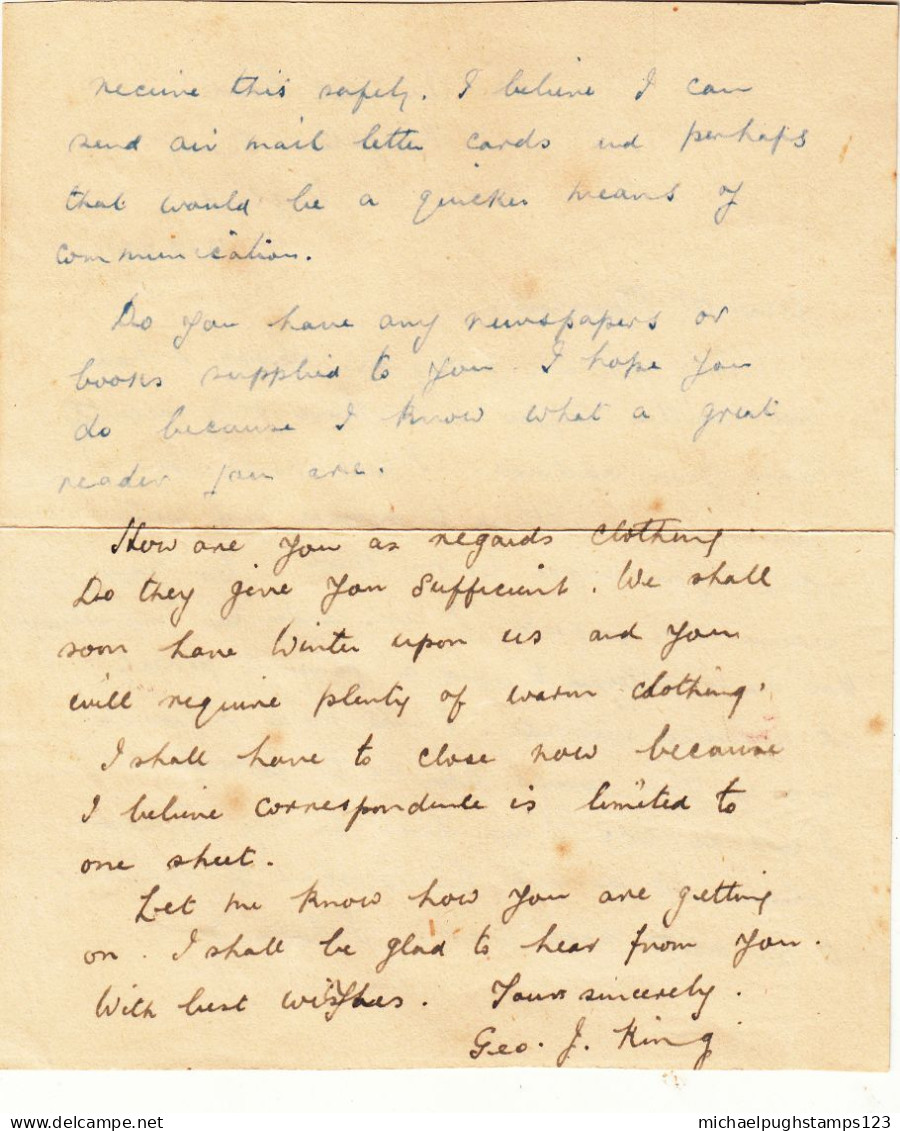 receive this safely. I believe I can
send air mail letter cards and perhaps
that would be a quicker means of
communication.
Do you have any newspapers or
books supplied to you. I hope you
do because I know what a great
reader you are.
How are you as regards clothing
Do they give you sufficient. We shall
soon have Winter upon us and you
will require plenty of warm clothing.
I shall have to close now because
I believe correspondence is limited to
one sheet.
Let me know how you are getting
on. I shall be glad to hear from you.
With best wishes. Yours sincerely.
Geo. J. King
delcampe.net
michaelpughstamps123